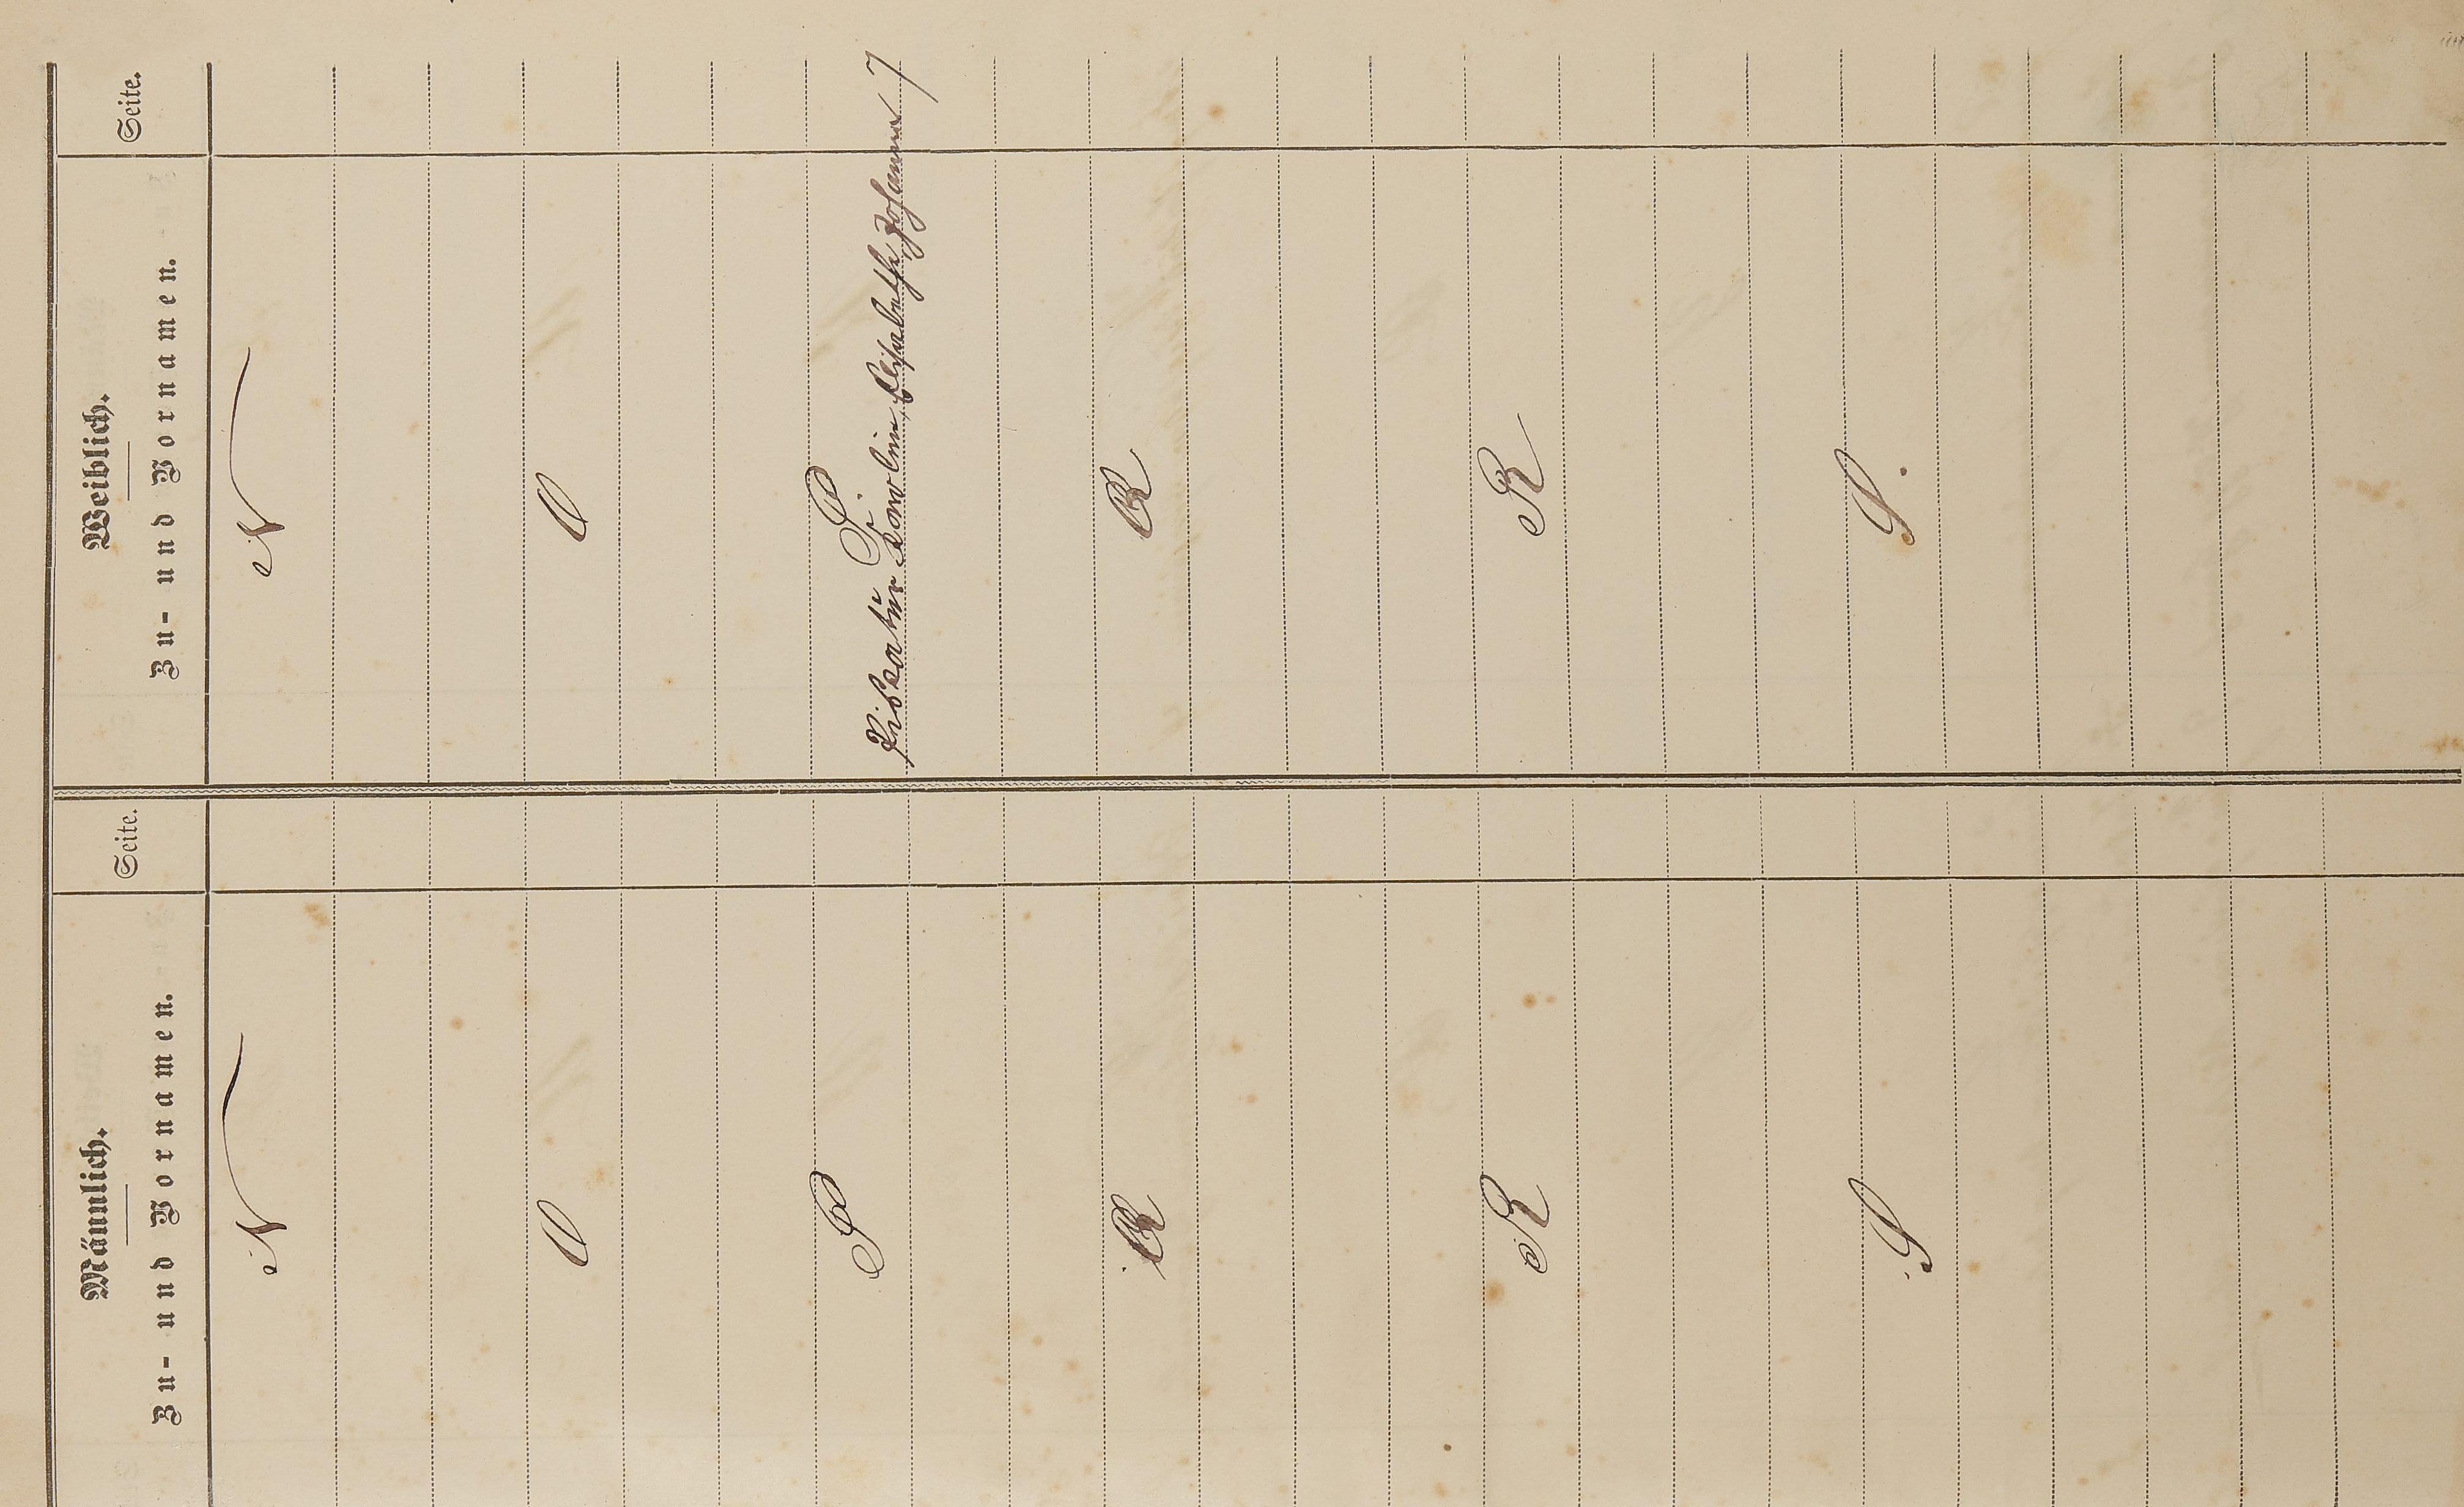 Männlich.
Zu- und Vornamen.
Seite.
Weiblich.
Zu- und Vornamen.
Seite.
N
N
O
O
P
P
Elisabethe, Johanna 7
Q
Q
R
R
S
S.